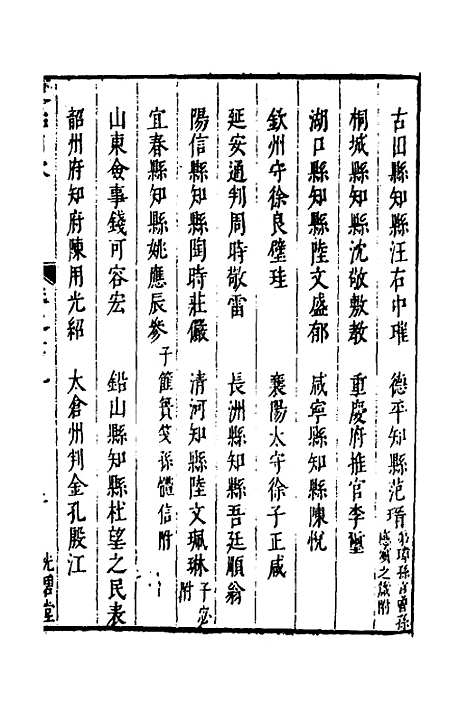 古田縣知縣汪右中璀 德平知縣范瑨
桐城縣知縣沈敬敷教 重慶府推官李璽
湖口縣知縣陸文盛郁 咸寧縣知縣陳悅
欽州守徐良璧珪 襄陽太守徐子正咸
延安通判周時敬雷 長洲縣知縣吾廷順翁
陽信縣知縣陶時莊儼 清河知縣陸文珮琳 子宓附
宜春縣知縣姚應辰參 子 孫 信附
山東僉事錢可容宏 鉛山縣知縣杜望之民表
韶州府知府陳用光紹 太倉州判金孔殷江
光碧堂